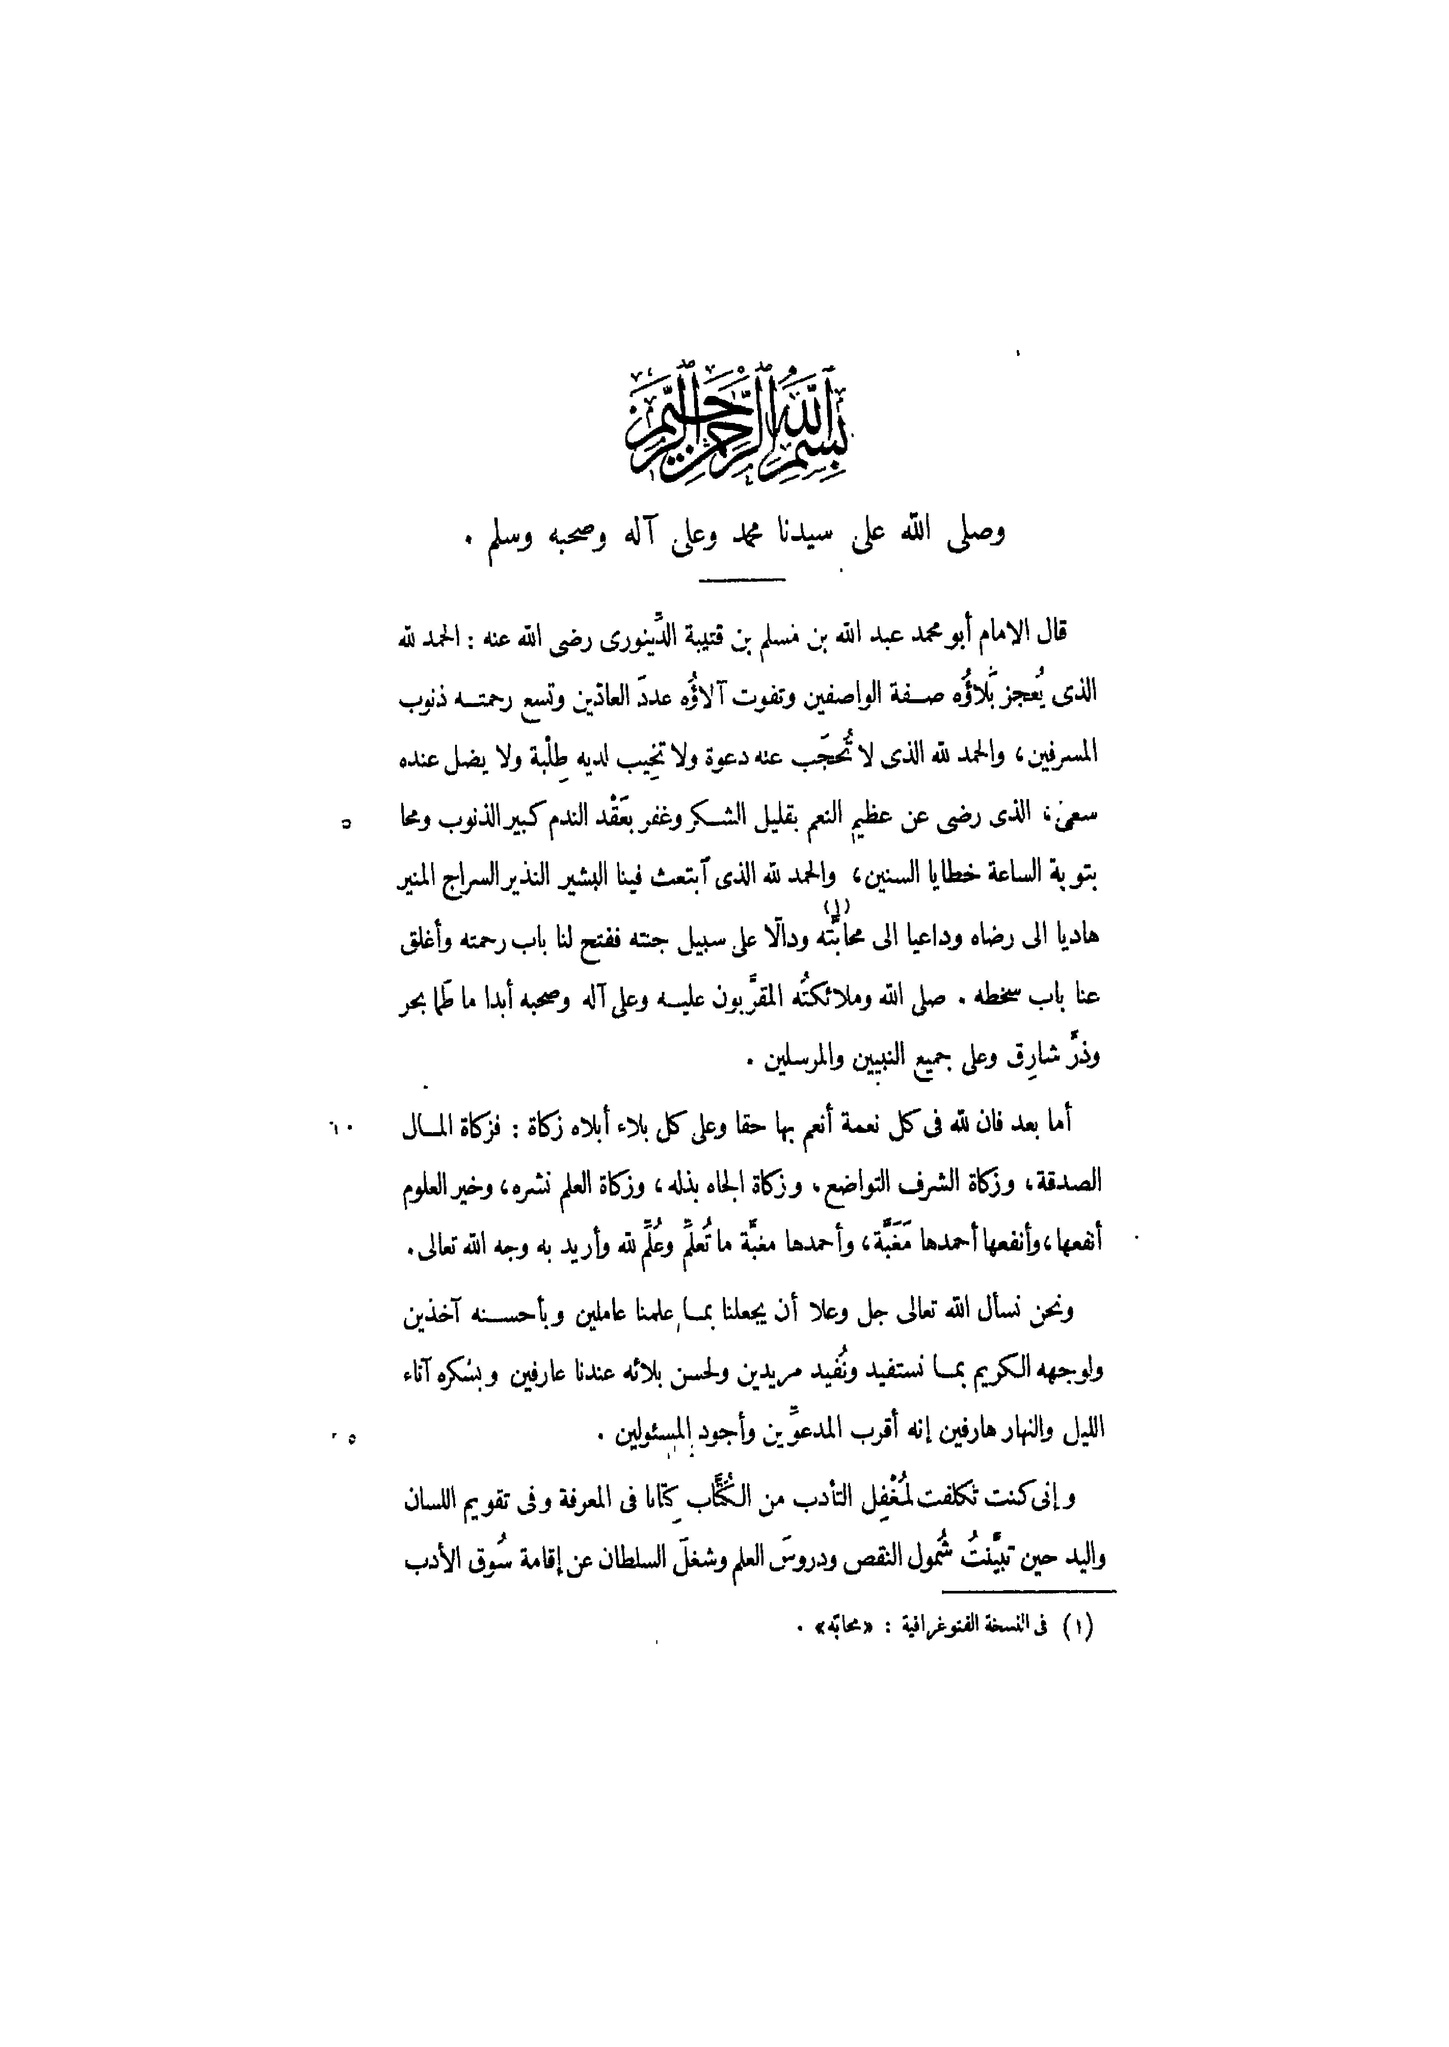 بِسْمِ ٱللَّهِ ٱلرَّحْمَٰنِ ٱلرَّحِيمِ
وصلى الله على سيدنا محمد وعلى آله وصحبه وسلم .
قال الامام أبو محمد عبد الله بن مسلم بن قتيبة الدِّينورى رضى الله عنه : الحمد لله
الذى يُعجز بَلاؤُه صفة الواصفين وتفوت آلاؤُه عددَ العادّين وتسع رحمته ذنوب
المسرفين، والحمد لله الذى لا تُحجَب عنه دعوة ولا تخِيب لديه طِلْبة ولا يضل عنده
سعىٌ، الذى رضى عن عظيم النعم بقليل الشكر وغفر بعَقْد الندم كبير الذنوب ومحا
٥
بتوبة الساعة خطايا السنين، والحمد لله الذى ٱبتعث فينا البشير النذير السراج المنير
هاديا الى رضاه وداعيا الى محابَّته (١) ودالّا على سبيل جنته ففتح لنا باب رحمته وأغلق
عنا باب سخطه . صلى الله وملائكتُه المقرَّبون عليه وعلى آله وصحبه أبدا ما طَما بحر
وذرَّ شارِق وعلى جميع النبيين والمرسلين .
أما بعد فان لله فى كل نعمة أنعم بها حقا وعلى كل بلاء أبلاه زكاة : فزكاة المال
١٠
الصدقة، وزكاة الشرف التواضع، وزكاة الجاه بذله، وزكاة العلم نشره، وخير العلوم
أنفعها، وأنفعها أحمدها مَغَبَّة، وأحمدها مغبَّة ما تُعلِّم وعُلِّم لله وأريد به وجه الله تعالى.
ونحن نسأل الله تعالى جل وعلا أن يجعلنا بما علمنا عاملين وبأحسنه آخذين
ولوجهه الكريم بما نستفيد ونُفيد مريدين ولحسن بلائه عندنا عارفين وبشكره آناء
الليل والنهار هارفين إنه أقرب المدعوِّين وأجود المسئولين .
٥
وإنى كنت تكلفت لمُغْفِل التأدب من الكُتَّاب كِتابا فى المعرفة وفى تقويم اللسان
واليد حين تبيَّنتُ شُمول النقص ودروسَ العلم وشغلَ السلطان عن إقامة سُوق الأدب
(١) فى النسخة الفتوغرافية : «محابّه» .